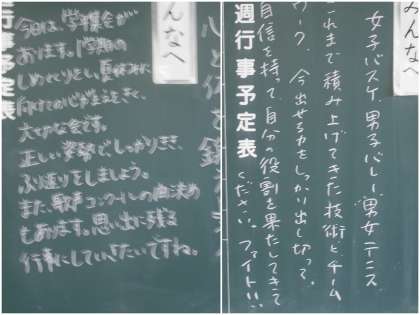 みんなへ
今日は、学年集会が
あります。1学期の
しめくくりをし、夏休みに
向けての心がまえをきく、
大切な会です。
正しい姿勢でしっかりきき、
ふり返りをしましょう。
また、歌声コンクールの曲決め
もあります。思い出に残る
行事にしていきたいですね。
行事予定表
心と体を鍛
みんなへ
女子バスケ、男子バレー、男女テニス
これまで積み上げてきた技術とチーム
ワーク、今出せる力をしっかり出し切って、
自信を持って、自分の役割を果たしてきて
ください。ファイト!!
週行事予定表